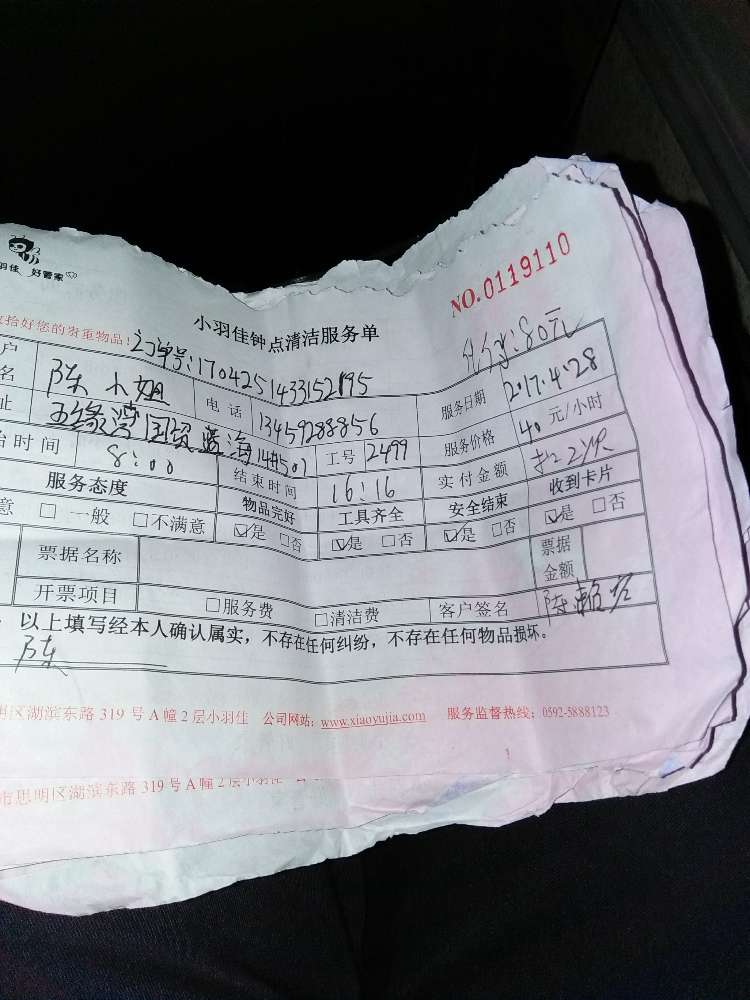 羽佳 好管家
NO.0119110
小羽佳钟点清洁服务单
收拾好您的贵重物品!
订单号:17042514331521195
80元
户名 陈小姐 电话 13459288856 服务日期 2017.4.28
址 五缘湾国贸蓝海 14#501 工号 2499 服务价格 40 元/小时
始时间 8:00 结束时间 16:16 实付金额 扣2次
服务态度 物品完好 工具齐全 安全结束 收到卡片
意 □一般 □不满意 ☑是 □否 ☑是 □否 ☑是 □否 ☑是 □否
票据名称 票据金额
开票项目 □服务费 □清洁费 客户签名
以上填写经本人确认属实,不存在任何纠纷,不存在任何物品损坏。
陈
明区湖滨东路 319 号 A 幢 2 层小羽佳 公司网站:www.xiaoyujia.com 服务监督热线:0592-5888123
1
市思明区湖滨东路 319 号 A 幢 2 层小羽佳